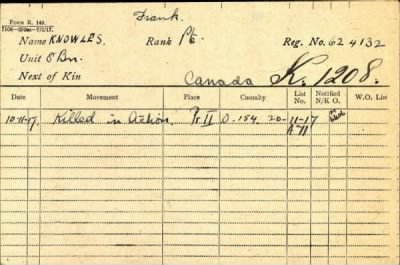 FORM R. 149.
Frank.
Name KNOWLES. Rank Pte. Reg. No. 624132
Unit 8 Bn.
Next of Kin Canada K. 1208.
Date Movement Place Casualty List No. Notified N/K O. W.O. List
10-11-17. Killed in Action. Pt II D. 154. 20-11-17
A 11